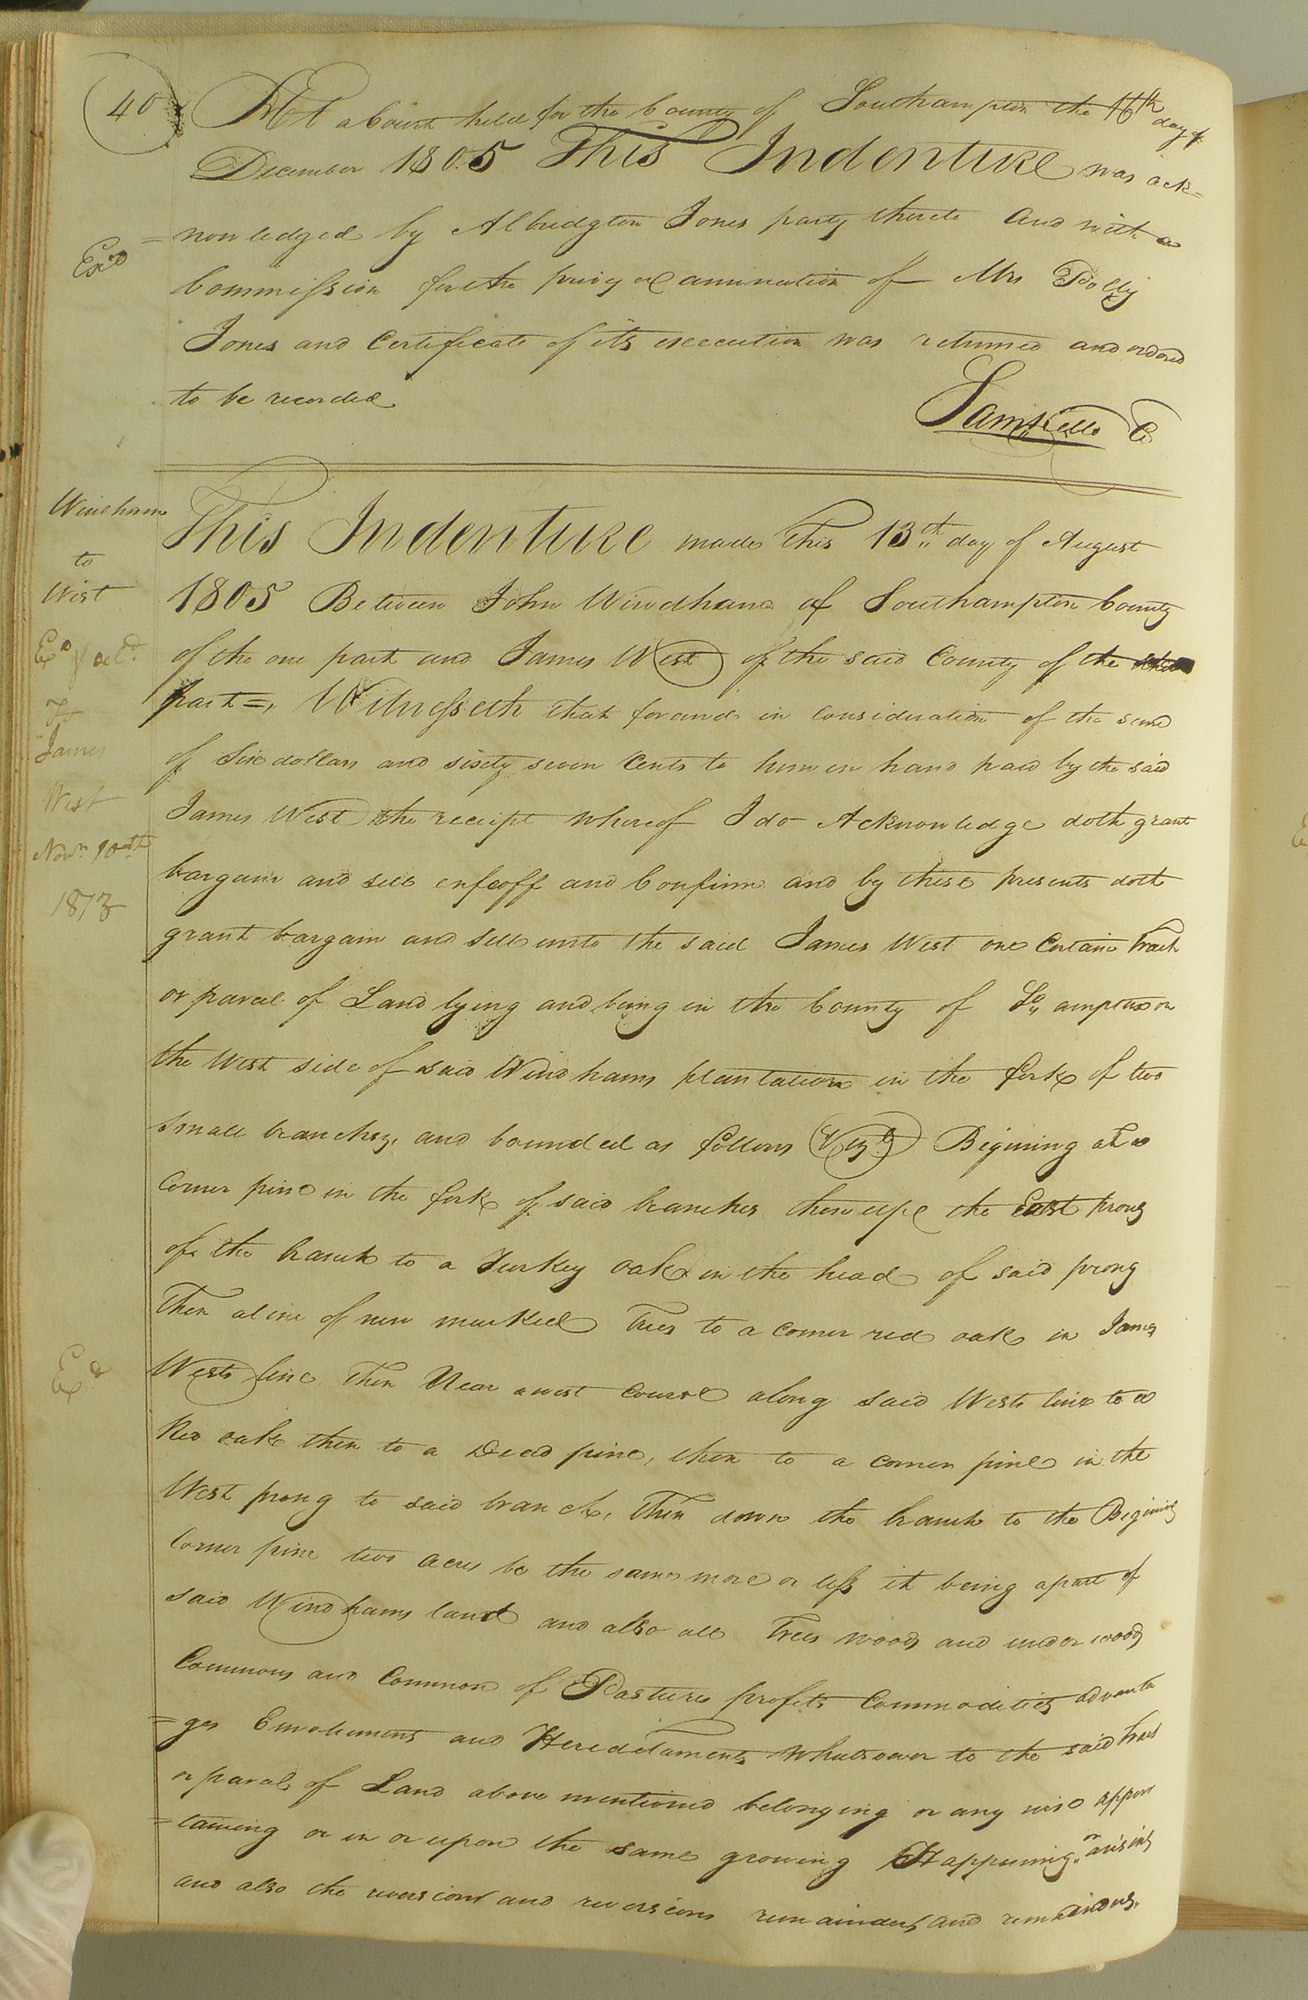 40
At a Court held for the County of Southampton the 16th day of
December 1805 This Indenture was ack=
=nowledged by Albridgton Jones party thereto and with a
Commission for the privy examination of Mrs Polly
Jones and Certificate of its execution was returned and ordered
to be recorded
Saml Kello C
Exd
Windham
to
West
Exd & deld
To
James
West
Novr 10th
1813
Exd
This Indenture made this 13th day of August
1805 Between John Windham of Southampton County
of the one part and James West of the said County of the other
part =, Witnesseth that for and in consideration of the sume
of Six dollars and sixty seven Cents to him in hand paid by the said
James West the receipt whereof I do Acknowledge doth grant
bargain and sell enfeoff and Confirm and by these presents doth
grant bargain and sell unto the said James West one Certain Track
or parcel of Land lying and being in the County of So,, ampton on
the West side of said Windhams plantation in the fork of two
small branches, and bounded as follows (Vizt) Begining at a
Corner pine in the fork of said branches then up the East prong
of the branch to a Turkey oak in the head of said prong
Then a line of new marked Trees to a corner red oak in James
Wests line Then Near a west course along said Wests line to a
Red oak then to a Dead pine, then to a corner pine in the
West prong to said branch, Then down the branch to the Begining
Corner pine two acres be the same more or less it being a part of
said Windhams land and also all Trees woods and under woods
Commons and Common of Pasture profits Commodities advanta
=ges Emoluments and Hereditaments whatsoever to the said Tract
or parcel of Land above mentioned belonging or any wise apper
=taining or in or upon the same growing Happening or arising
and also the reversion and reversions remainder and remainders.